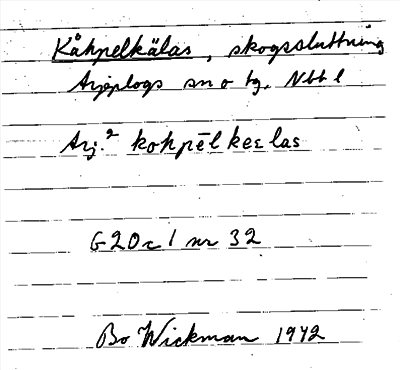 Kåhpelkälas, skogssluttning
Arjeplogs sn o tg. Nbtl
Arj.² kohpēlkeɛlas
G20c1 nr 32
Bo Wickman 1942